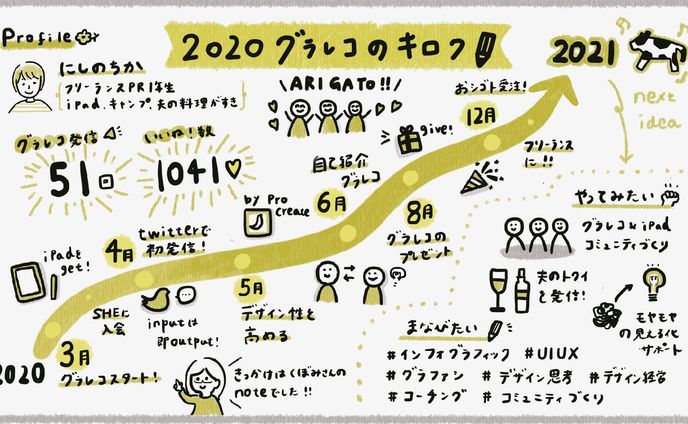 Profile
にしのちか
フリーランスPR1年生
iPad、キャンプ、夫の料理がすき
2020 グラレコのキロク
2021
next
idea
グラレコ発信
51
いいね！数
1041
\ARIGATO!!/
おシゴト受注！
12月
give!
フリーランス
に!!
自己紹介
グラレコ
6月
by Pro
create
8月
グラレコの
プレゼント
iPadを
get!
4月
twitterで
初発信！
SHEに
入会
inputは
即output!
5月
デザイン性を
高める
2020
3月
グラレコスタート！
きっかけはくぼみさんの
noteでした!!
やってみたい
グラレコ&iPad
コミュニティづくり
夫のトクイ
を発信！
モヤモヤ
の見える化
サポート
まなびたい
#インフォグラフィック #UIUX
#グラファシ #デザイン思考 #デザイン経営
#コーチング #コミュニティづくり